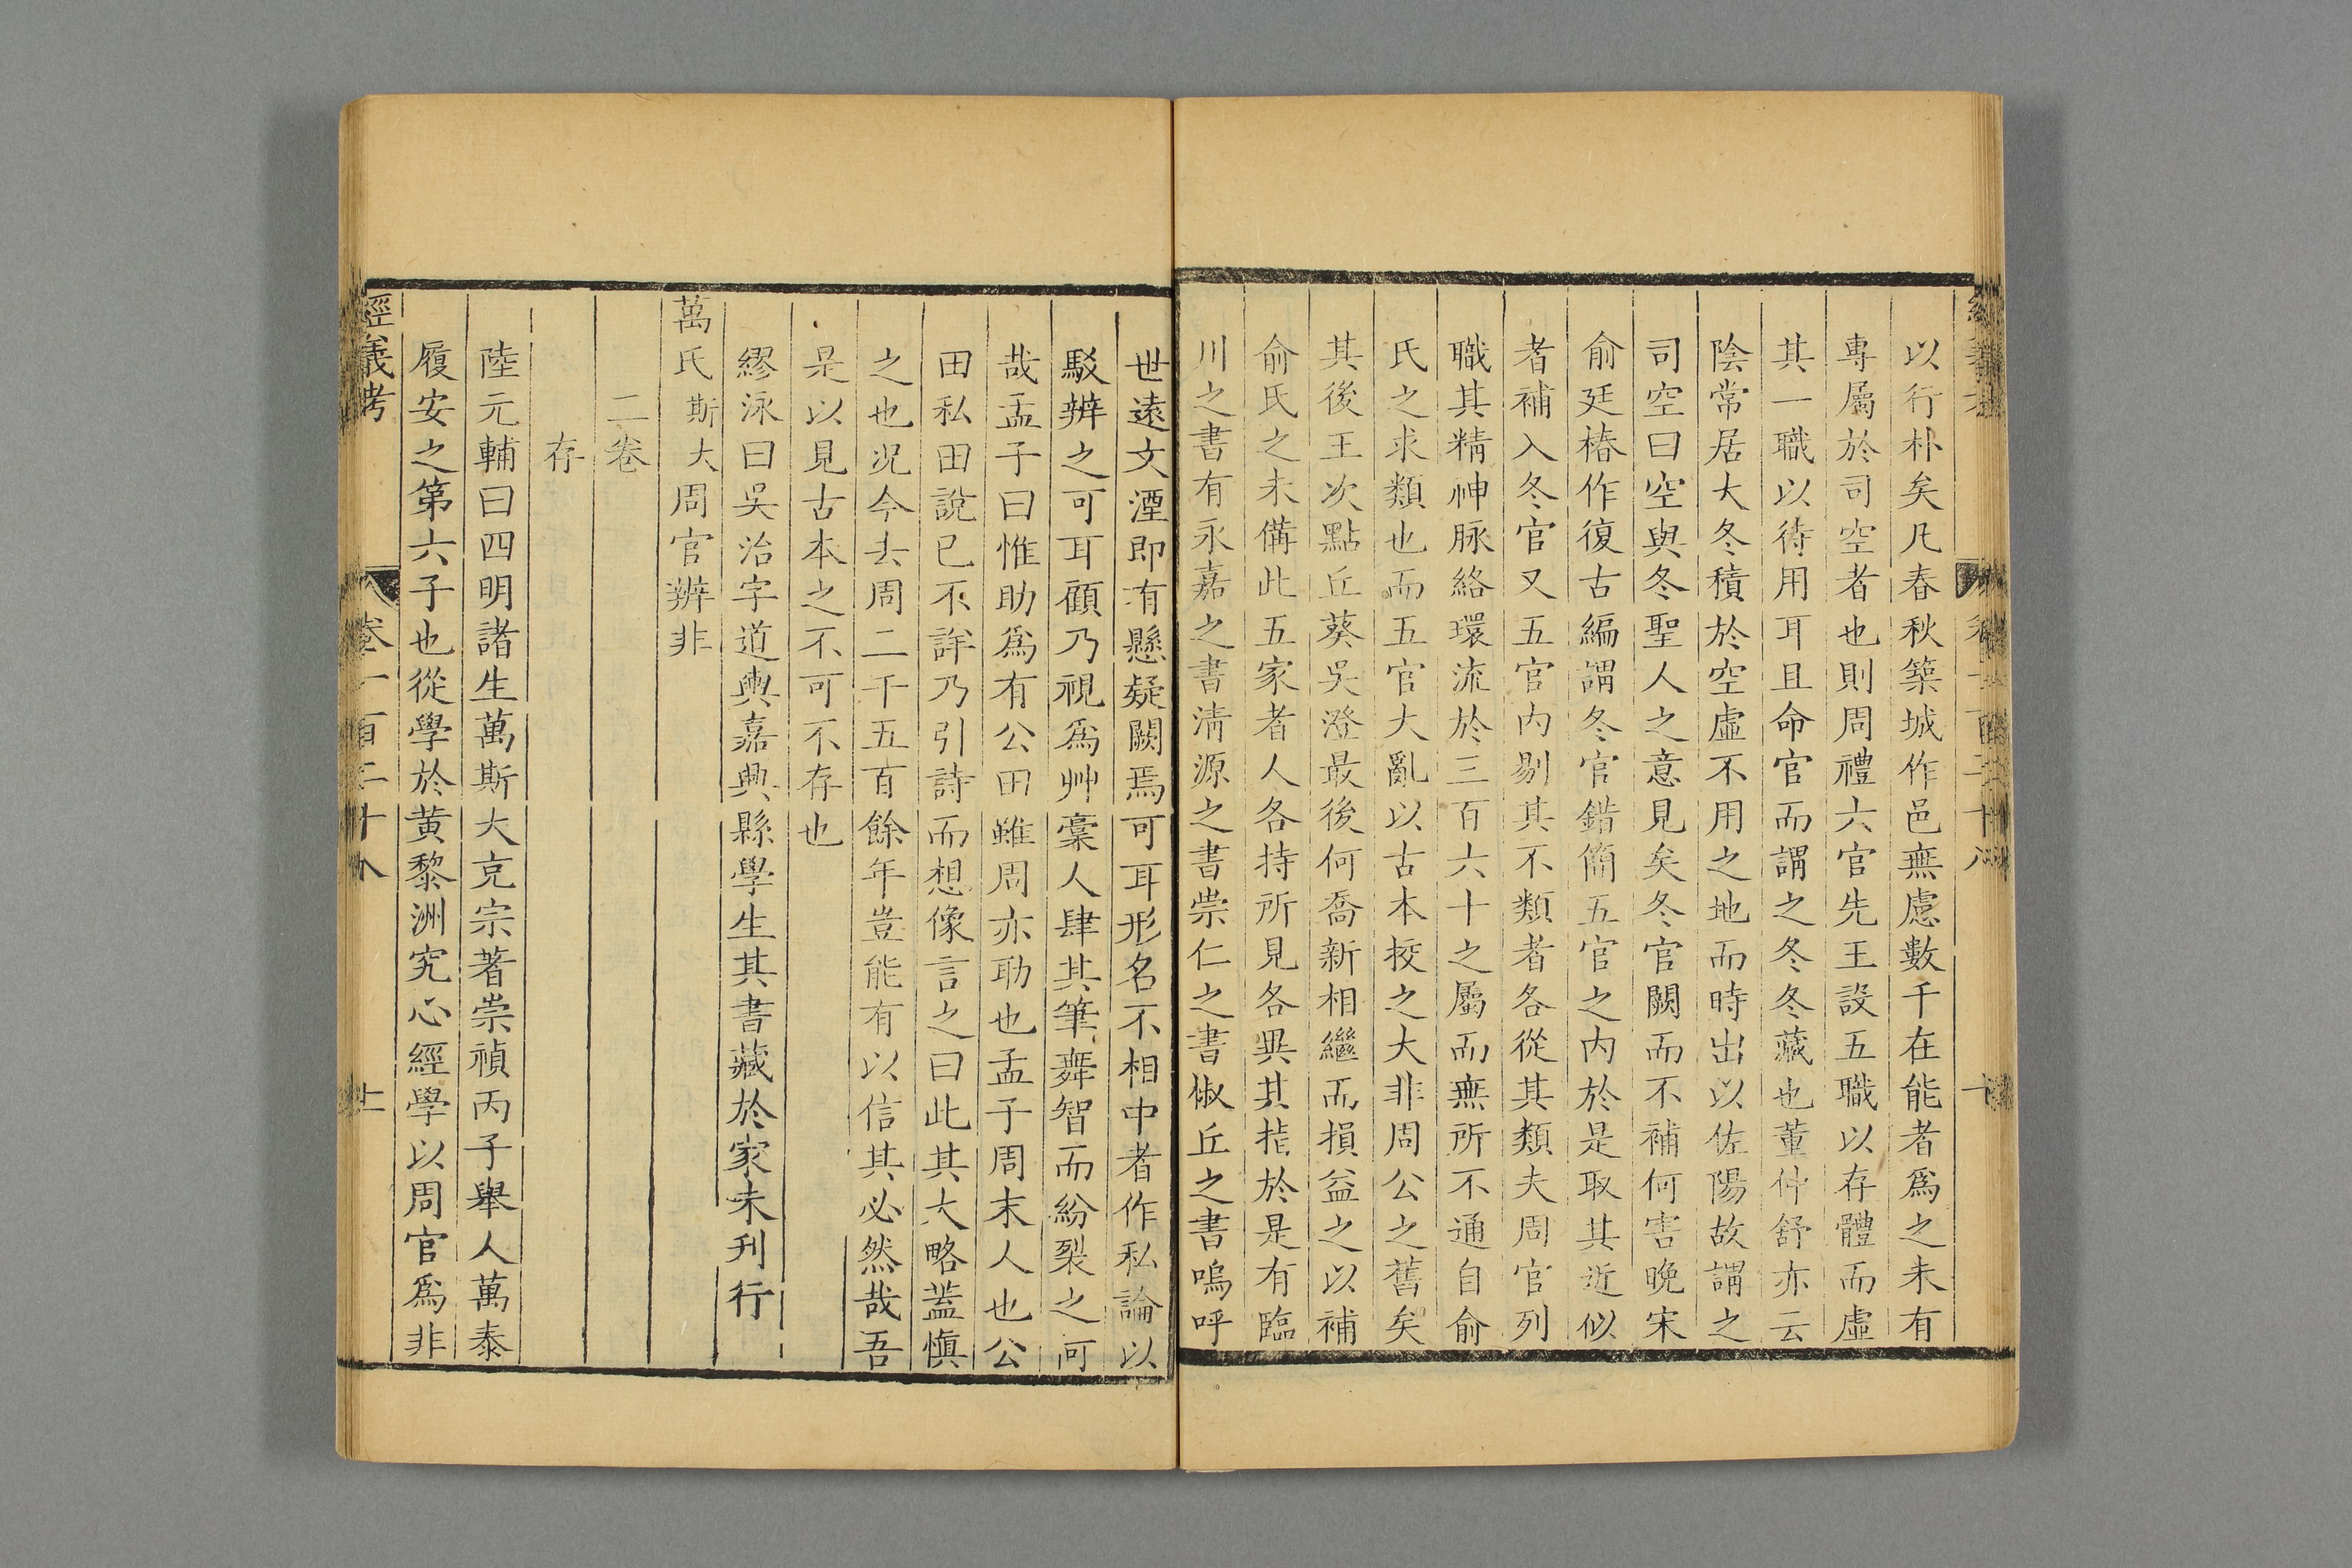 以行朴矣凡春秋築城作邑無慮數千在能者爲之未有
專屬於司空者也則周禮六官先王設五職以存體而虛
其一職以待用耳且命官而謂之冬冬藏也董仲舒亦云
陰常居大冬積於空虛不用之地而時出以佐陽故謂之
司空曰空與冬聖人之意見矣冬官闕而不補何害晚宋
俞廷椿作復古編謂冬官錯簡五官之内於是取其近似
者補入冬官又五官内剔其不類者各從其類夫周官列
職其精神脉絡環流於三百六十之屬而無所不通自俞
氏之求類也而五官大亂以古本挍之大非周公之舊矣
其後王次點丘葵吳澄最後何喬新相繼而損益之以補
俞氏之未備此五家者人各持所見各異其指於是有臨
川之書有永嘉之書淸源之書崇仁之書椒丘之書嗚呼
世遠文湮即有懸疑闕焉可耳形名不相中者作私論以
駁辨之可耳顧乃視爲艸藁人肆其筆舞智而紛裂之可
哉孟子曰惟助爲有公田雖周亦助也孟子周末人也公
田私田說已不詳乃引詩而想像言之曰此其大略蓋愼
之也况今去周二千五百餘年豈能有以信其必然哉吾
是以見古本之不可不存也
繆泳曰吳治字道輿嘉興縣學生其書藏於家未刋行
萬氏斯大周官辨非
二卷
存
陸元輔曰四明諸生萬斯大克宗著崇禎丙子舉人萬泰
履安之第六子也從學於黃黎洲究心經學以周官爲非
經義考
卷一百二十八